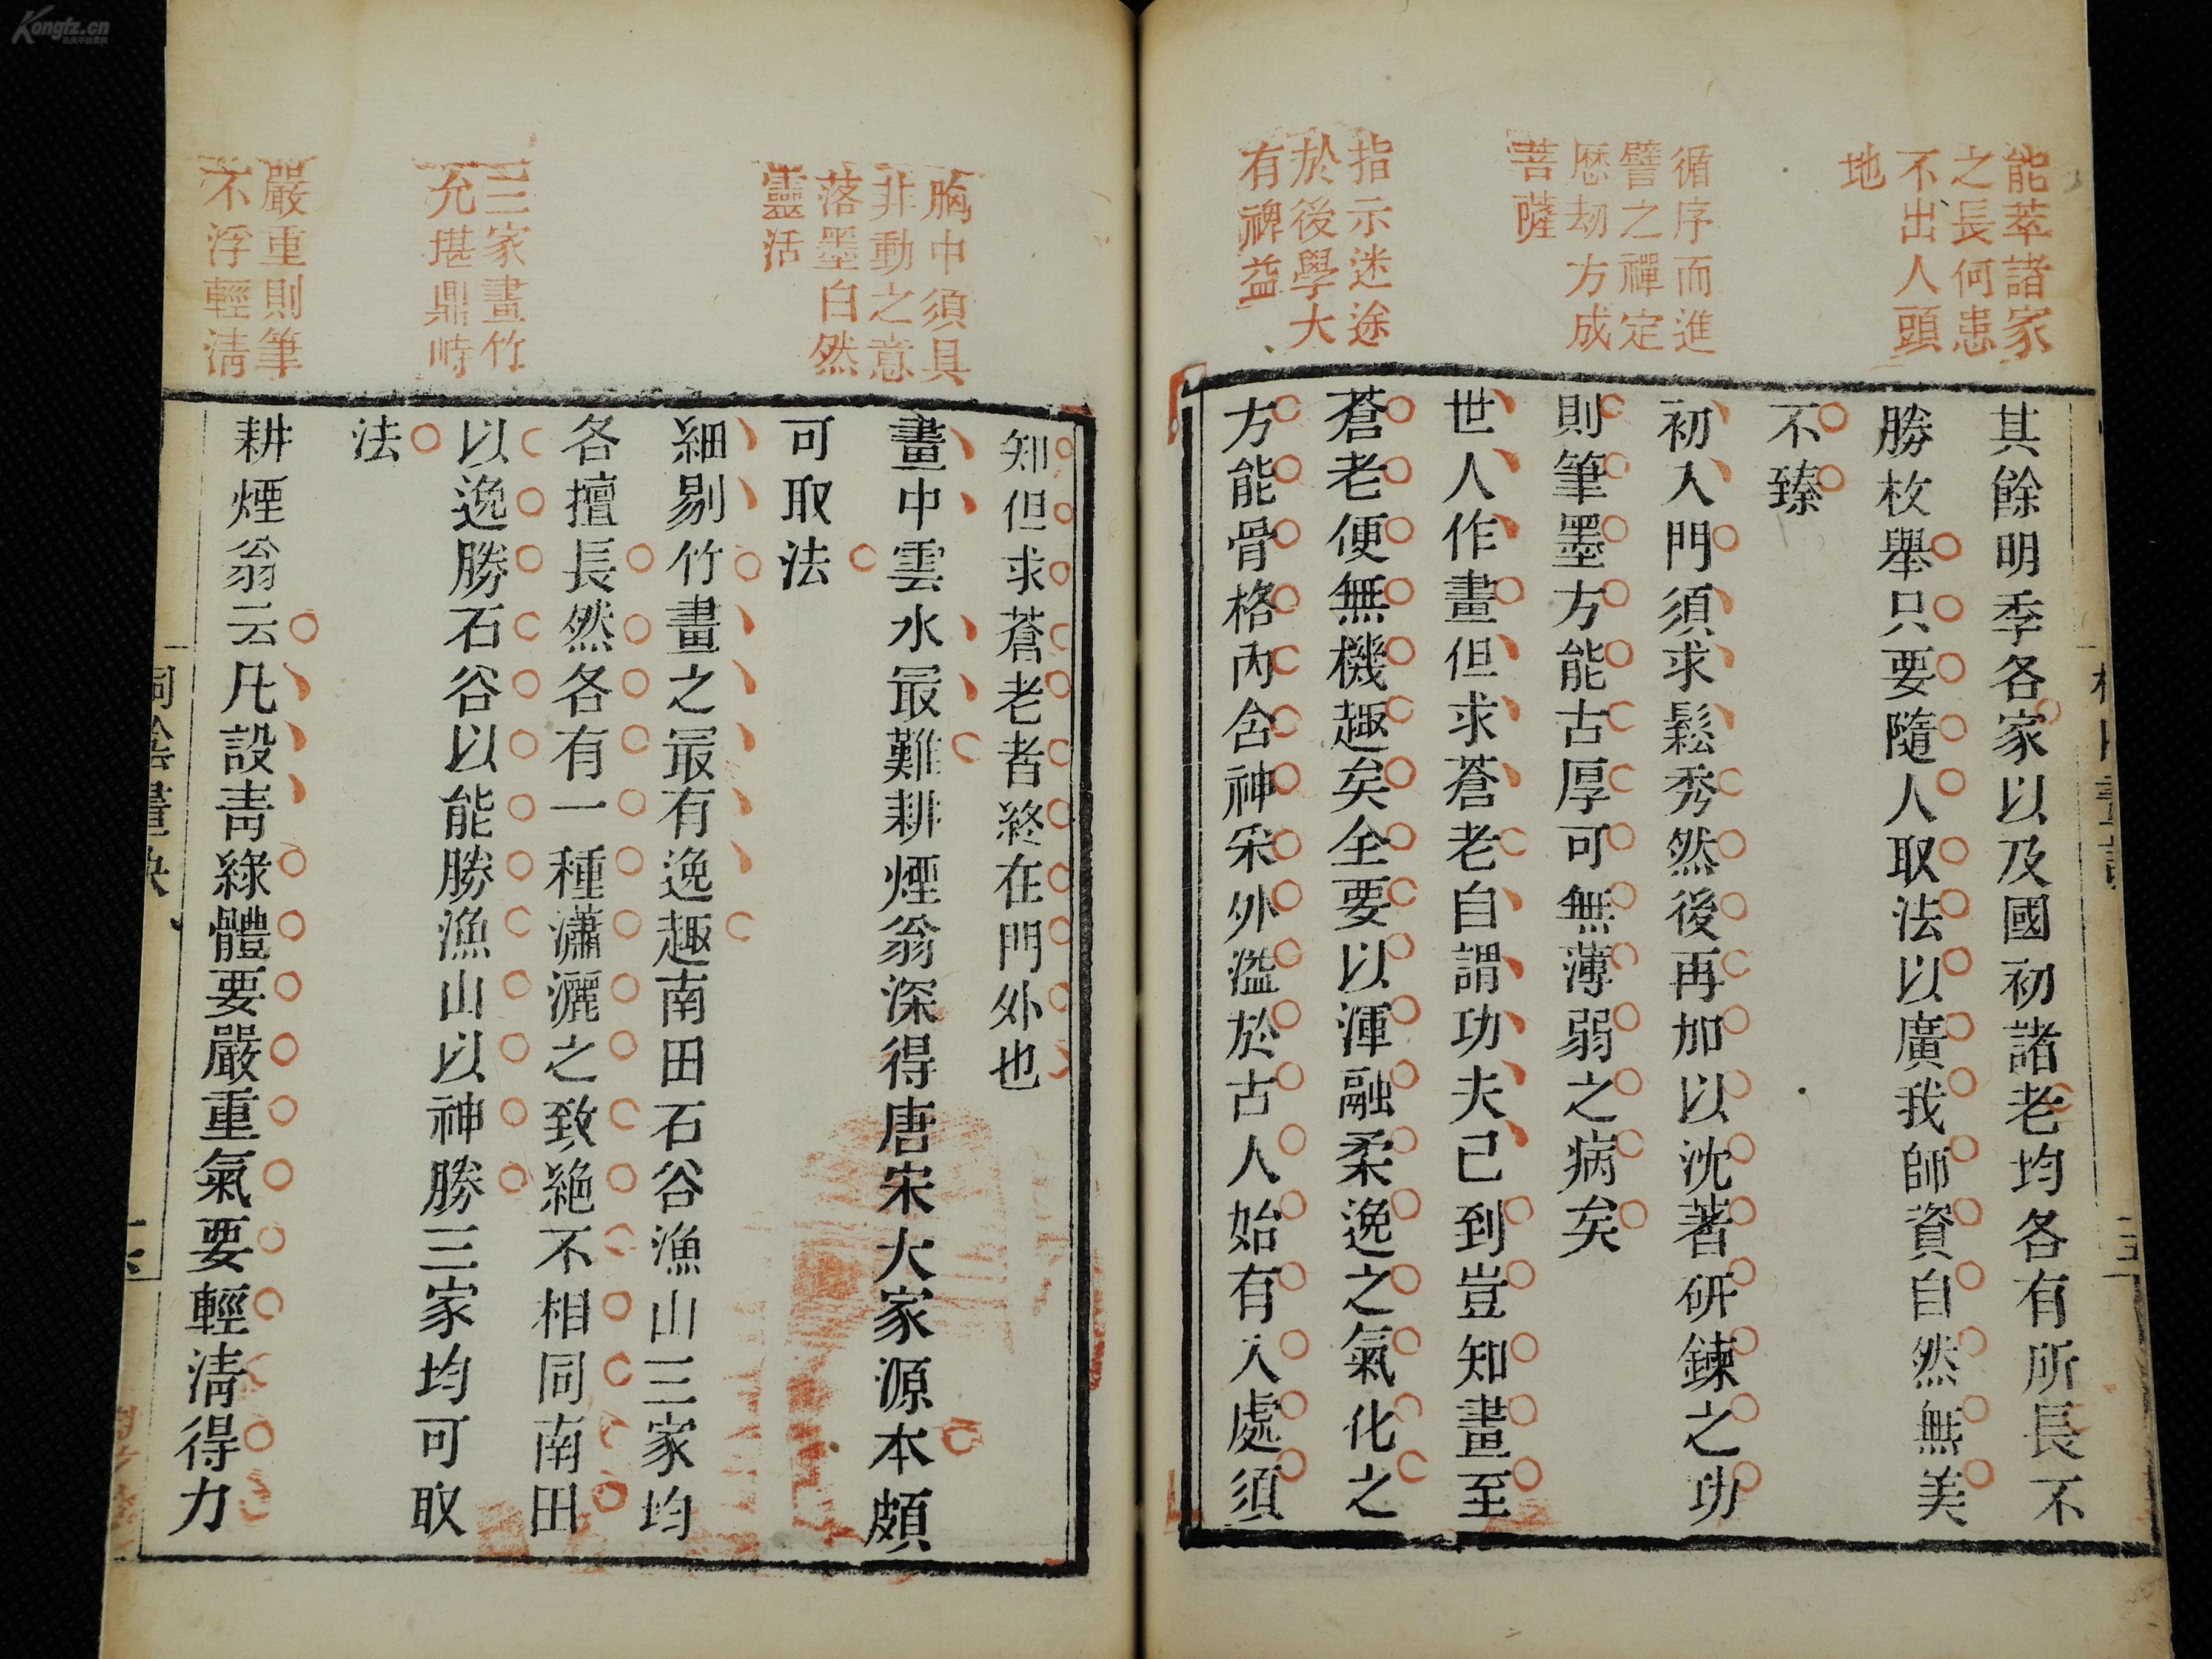 能萃諸家
之長何患
不出人頭
地
循序而進
譬之禪定
歷劫方成
菩薩
指示迷途
於後學大
有裨益
其餘明季各家以及國初諸老均各有所長不
勝枚舉只要隨人取法以廣我師資自然無美
不臻
初入門須求鬆秀然後再加以沈著研鍊之功
則筆墨方能古厚可無薄弱之病矣
世人作畫但求蒼老自謂功夫已到豈知畫至
蒼老便無機趣矣全要以渾融柔逸之氣化之
方能骨格內含神采外溢於古人始有入處須
胸中須具
非動之意
落墨自然
靈活
三家畫竹
允堪鼎峙
嚴重則筆
不浮輕清
知但求蒼老者終在門外也
畫中雲水最難耕煙翁深得唐宋大家源本頗
可取法
細剔竹畫之最有逸趣南田石谷漁山三家均
各擅長然各有一種瀟灑之致絕不相同南田
以逸勝石谷以能勝漁山以神勝三家均可取
法
耕煙翁云凡設青綠體要嚴重氣要輕清得力
Kongfz.cn